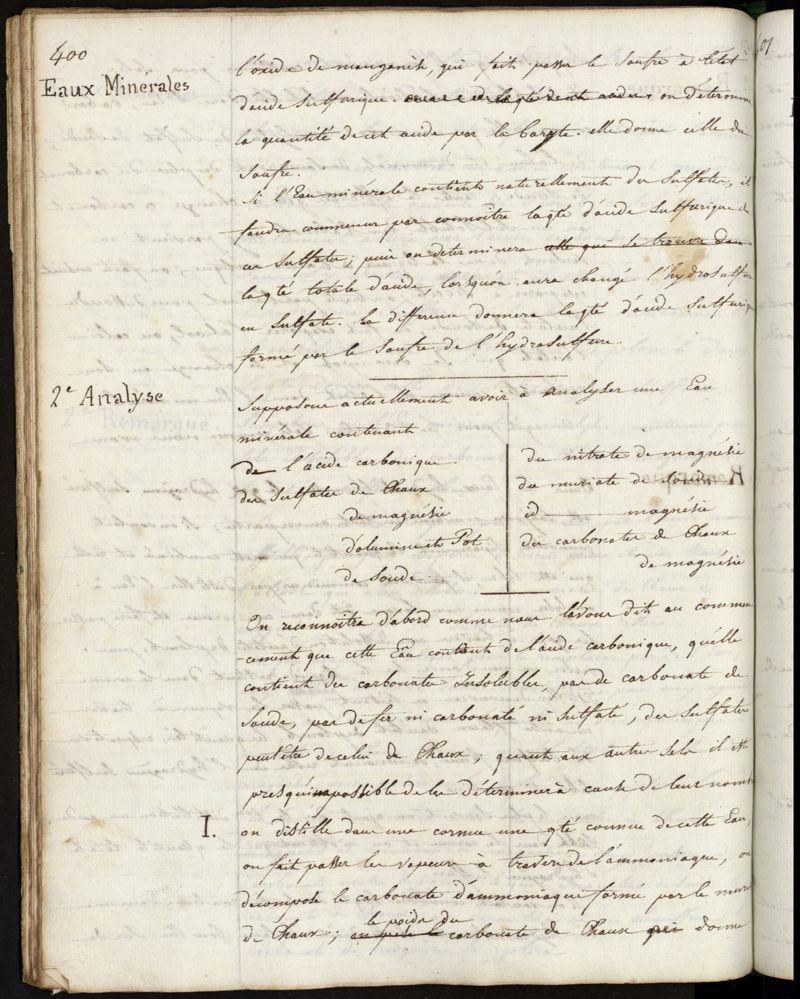 400
Eaux Minérales
l'oxide de manganèse, qui fait passer le soufre à l'état
d'acide sulfurique. on détermine
la quantité de cet acide par la baryte. elle donne celle du
soufre.
Si l'Eau minérale contient naturellement des sulfates, il
faudra commencer par connoître la qté d'acide sulfurique de
ces sulfates, puis on determinera celle qui se trouve dans
la qté totale d'acide, lorsqu'on aura changé l'hydrosulfure
en sulfate. la difference donnera la qté d'acide sulfurique
formé par le soufre de l'hydrosulfure.
2e Analyse
Supposons actuellement avoir à analyser une Eau
minérale contenant
de l'acide carbonique
des sulfates de Chaux
de magnésie
d'alumine et Pot
de soude
du nitrate de magnésie
du muriate de soude
id magnésie
du carbonate de Chaux
de magnésie
On reconnoitra d'abord comme nous l'avons dit au commen
-cement que cette Eau contient de l'acide carbonique, qu'elle
contient des carbonates Insolubles, pas de carbonate de
soude, pas de fer ni carbonaté ni sulfaté, des sulfates
peutêtre de celui de Chaux; quant aux autres sels il est
presqu'impossible de les déterminer à cause de leur nombre
I.
on distille dans une cornue une qté connue de cette Eau,
on fait passer les vapeurs à travers de l'ammoniaque, on
décompose le carbonate d'ammoniaque formé par le muriate
le poids du
de Chaux; on pèse le carbonate de Chaux qui donne